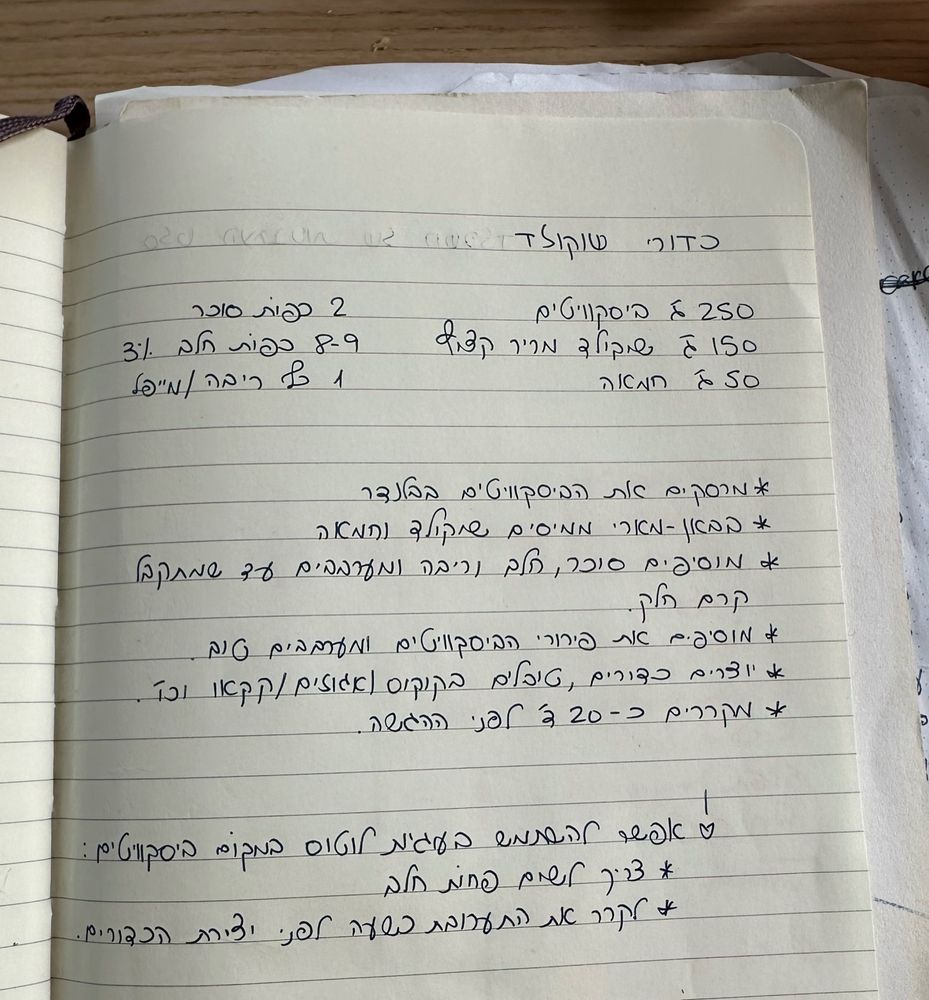 כדורי שוקולד
250 ג' ביסקוויטים
150 ג' שוקולד מריר קצוץ
50 ג' חמאה
2 כפות סוכר
8-9 כפות חלב 3%
1 כף ריבה/מייפל
* מרסקים את הביסקוויטים בבלנדר
* בבאן-מארי ממיסים שוקולד וחמאה
* מוסיפים סוכר, חלב וריבה ומערבבים עד שמתקבל
קרם חלק.
* מוסיפים את פירורי הביסקוויטים ומערבבים טוב.
* יוצרים כדורים, טובלים בקוקוס/אגוזים/קקאו וכד'.
* מקררים כ-20 ד' לפני ההגשה.
אפשר להשתמש בעוגיות לוטוס במקום ביסקוויטים:
* צריך לשים פחות חלב
* לקרר את התערובת כשעה לפני יצירת הכדורים.